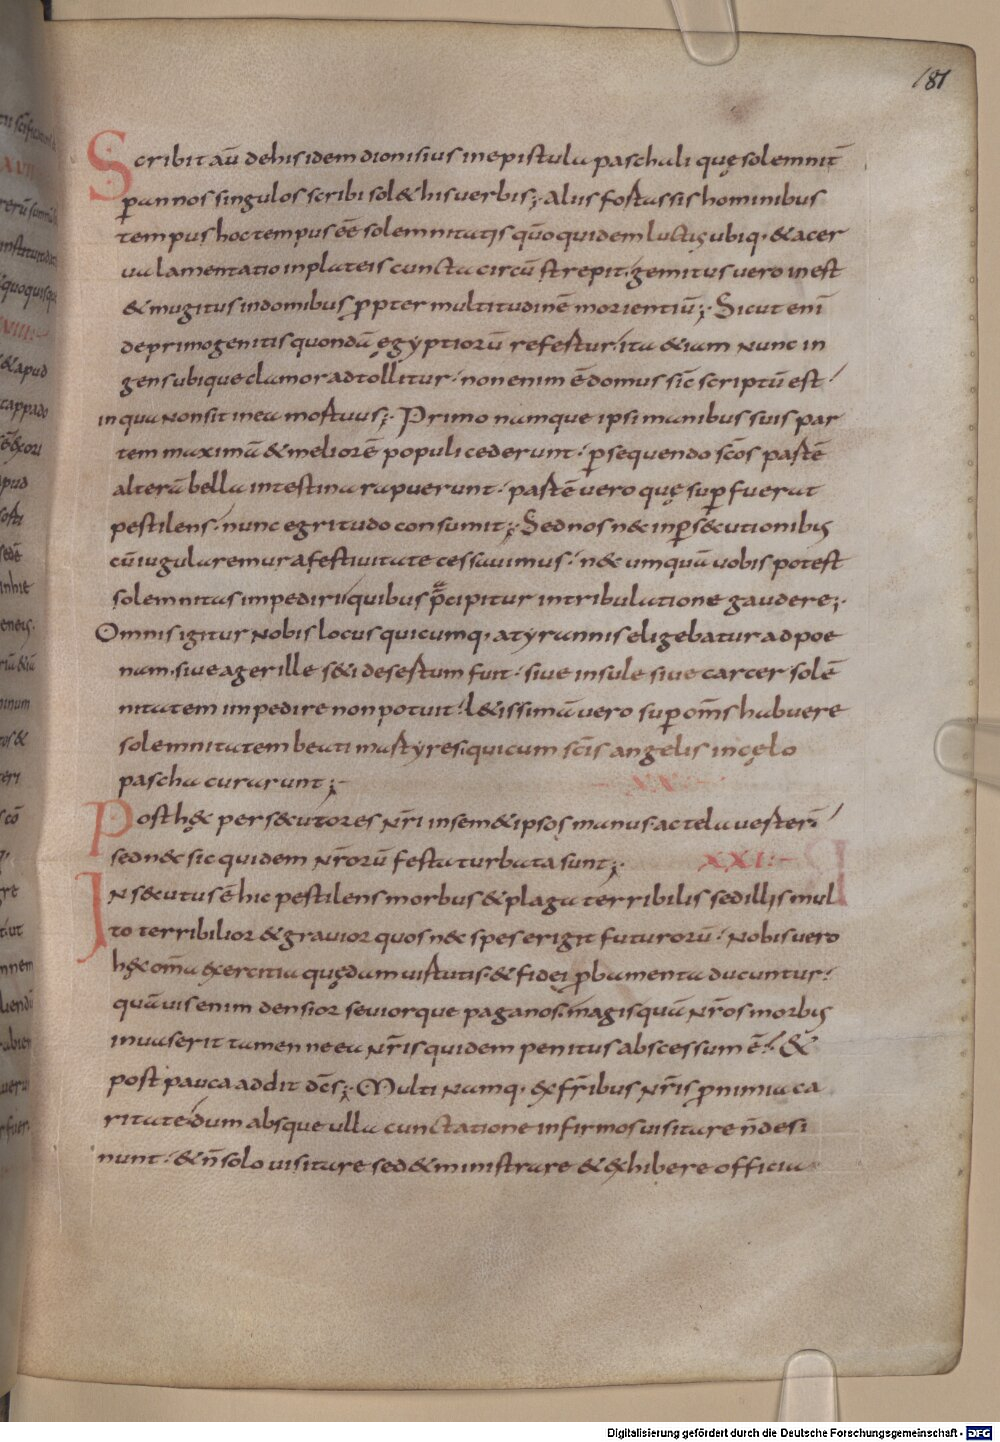 181
Scribit aū dehis idem dionisius in epistula paschali quę solemnit̄
ꝑ annos singulos scribi sol& his uerbis; Aliis fortassis hominibus
tempus hoc tempus eḗ solemnitatis quo quidem luctus ubiq; & acer
ua lamentatio inplateis cuncta circū strepit. gemitus uero inest
& mugitus indomibus ꝓpter multitudinē morientiū; Sicut enī
deprimogenitis quondā ęgyptiorū refertur. ita &iam nunc in
gens ubique clamor adtollitur. non enim ē domus sic̄ scriptū est.
in qua non sit inea mortuus; Primo namque ipsi manibus suis par
tem maximā & meliorē populi cederunt. ꝑsequendo sc̄os partē
alterā bella intestina rapuerunt. partē uero quę suꝑfuerat
pestilens. nunc egritudo consumit; Sed nos nec inꝑsecutionibus
cū iugularemur afestiuitate cessauimus. nec umquā uobis potest
solemnitas impediri quibus p̄cipitur in tribulatione gaudere;
Omnis igitur nobis locus quicumq; atyrannis eligebatur ad poe
nam. siue ager ille s&i desertum fuit. siue insule siue carcer solē
nitatem impedire non potuit. l&issimā uero suꝑ om̄s habuere
solemnitatem beati martyres. qui cum sc̄is angelis incęlo
pascha curarunt;
XX
Post hęc persecutores nr̄i insem&ipsos manus ac tela uerter̄
sed nec sic quidem nr̄orū festa turbata sunt; XXI:
INsecutus ē hic pestilens morbus & plaga terribilis sed illis mul
to terribilior & grauior quos nec spes erigit futurorū. Nobis uero
hęc om̄a exercitia quędam uirtutis. & fidei ꝓbamenta ducuntur.
quāuis enim densior seuiorque paganos. magisquā nr̄os morbus
inuaserit tamen ne ea nr̄is quidem penitus abscessum ē. &
post pauca addit dc̄s; Multi namq; ex fr̄ibus nr̄is ꝓ nimia ca
ritate. dum absque ulla cunctatione infirmos uisitare n̄ desi
nunt. & n̄ solo uisitare sed & ministrare & exhibere officia
Digitalisierung gefördert durch die Deutsche Forschungsgemeinschaft - DFG